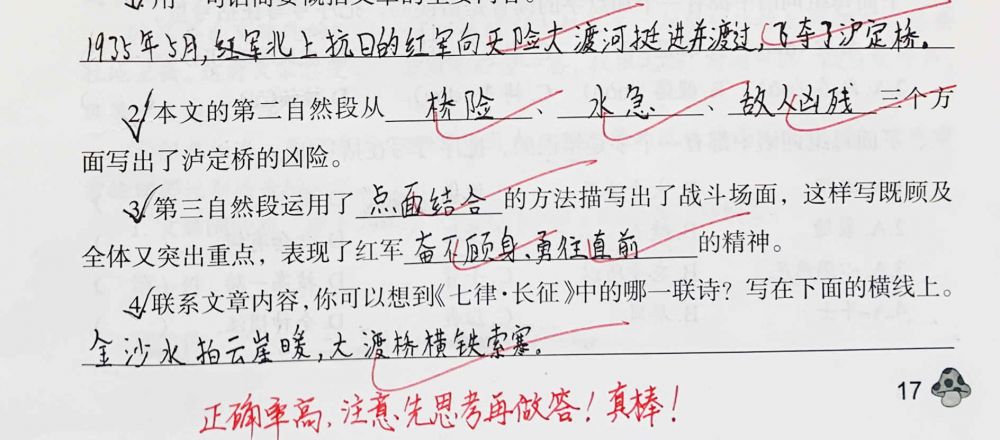 用一句话简要概括文章的主要内容。
1935年5月,红军北上抗日的红军向天险大渡河挺进并渡过,飞夺了泸定桥。
2.本文的第二自然段从 桥险 、 水急 、 敌人凶残 三个方
面写出了泸定桥的凶险。
3.第三自然段运用了 点面结合 的方法描写出了战斗场面，这样写既顾及
全体又突出重点，表现了红军 奋不顾身、勇往直前 的精神。
4.联系文章内容,你可以想到《七律·长征》中的哪一联诗？写在下面的横线上。
金沙水拍云崖暖,大渡桥横铁索寒。
17
正确率高,注意先思考再做答！真棒！